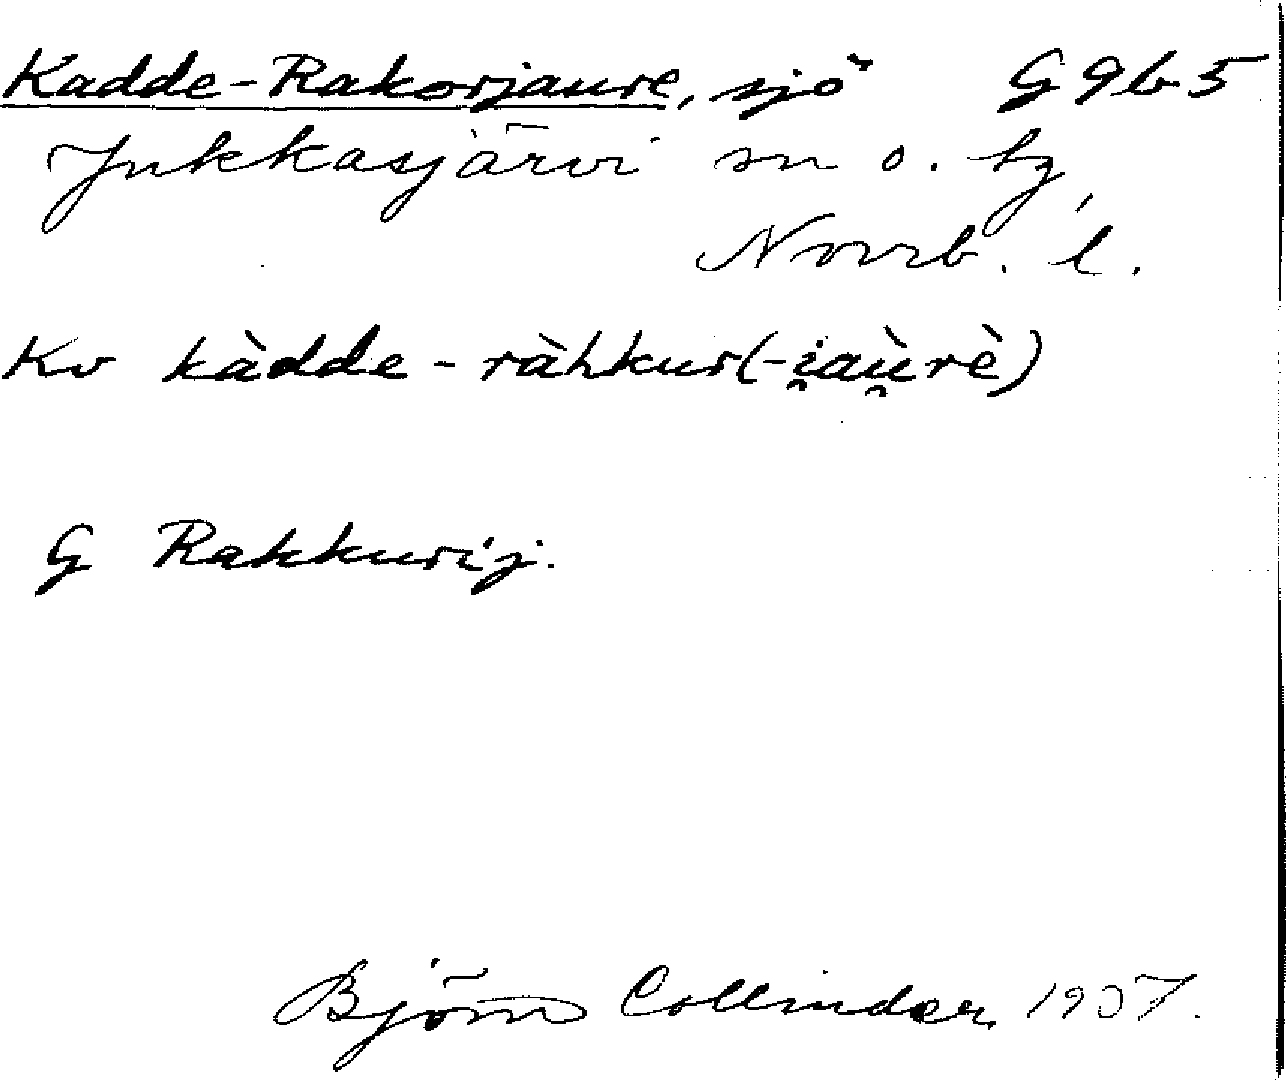 Kadde-Rakorjaure, sjö G9b5
Jukkasjärvi sn o. tg,
Norrb. l.
Kv kàdde-ràhkur(-i̯aù̯rè)
G Rakkurij.
Björn Collinder 1937.